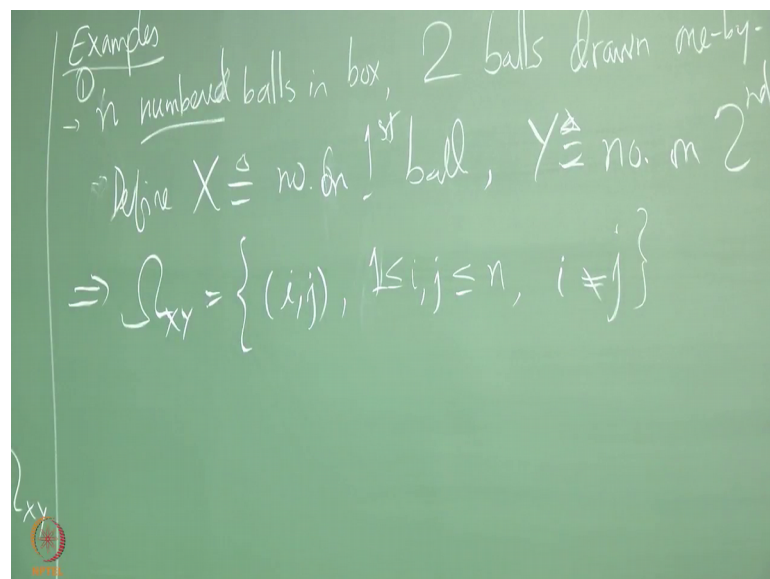 Examples
①
→ n numbered balls in box, 2 balls drawn one-by-
⇒ Define X ≜ no. on 1st ball, Y ≜ no. on 2nd
⇒ Ω_XY = { (i,j), 1 ≤ i,j ≤ n, i ≠ j }
Ω_XY
NPTEL